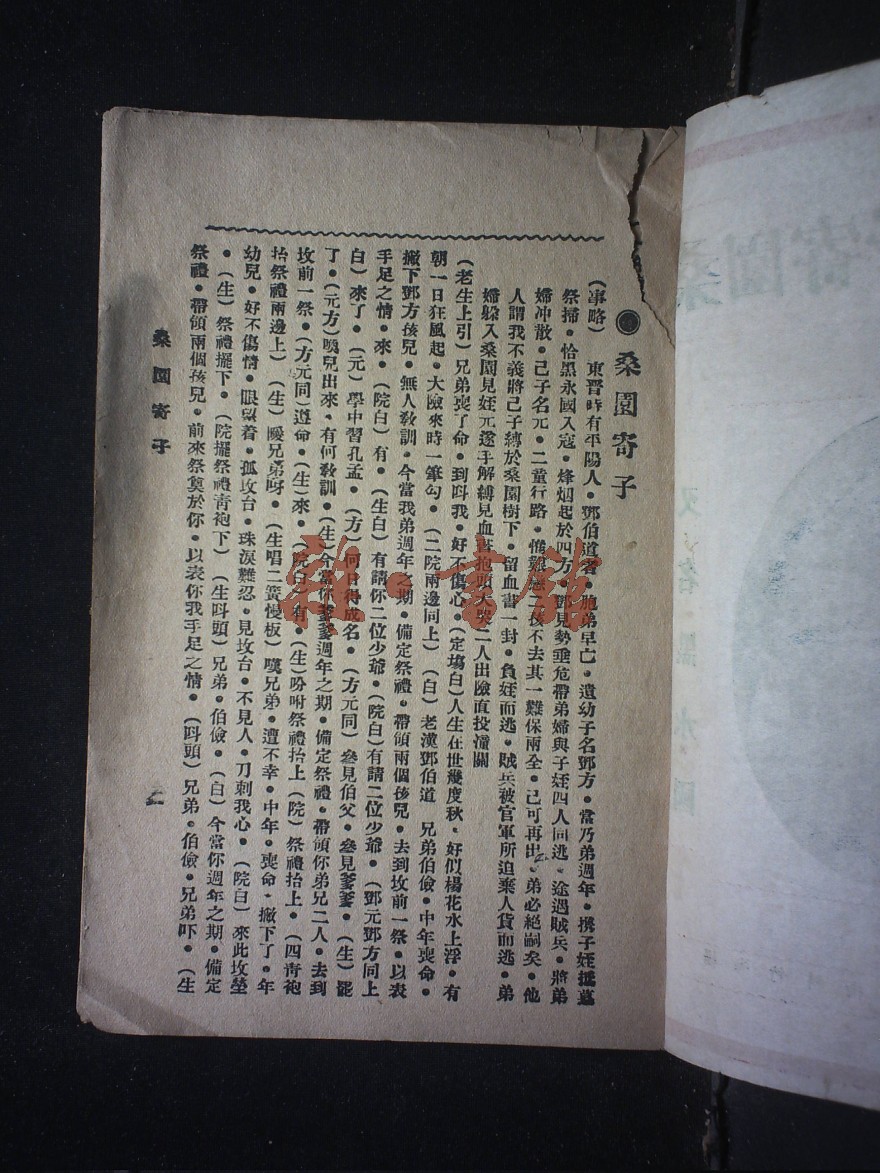 ●桑園寄子
(事略) 東晉時有平陽人●鄧伯道者●胞弟早亡●遺幼子名鄧方●當乃弟週年●携子姪抵墓
祭掃●恰黑永國入寇●烽烟起於四方●鄧見勢垂危帶弟婦與子姪四人同逃●途遇賊兵●將弟
婦冲散●己子名元●二童行路●惟難 二孩不去其一難保兩全●己可再出●弟必絕嗣矣●他
人謂我不義將己子縛於桑園樹下●留血書一封●負姪而逃●賊兵被官軍所迫棄人貨而逃●弟
婦躲入桑園見姪元遂手解縛見血書抱頭大哭二人出險直投潼關
(老生上引)兄弟喪了命●到呌我●好不傷心●(定塲白)人生在世幾度秋●好似楊花水上浮●有
朝一日狂風起●大險來時一筆勾●(二院兩邊同上)(白)老漢鄧伯道 兄弟伯儉●中年喪命●
撇下鄧方孩兒●無人敎訓●今當我弟週年之期●備定祭禮●帶領兩個孩兒●去到坟前一祭●以表
手足之情●來●(院白)有●(生白)有請你二位少爺●(院白)有請二位少爺●(鄧元鄧方同上
白)來了●(元)學中習孔孟●(方)何日得成名●(方元同)叅見伯父●叅見爹爹●(生)罷
了●(元方)喚兒出來●有何敎訓●(生)今當你爹爹週年之期●備定祭禮●帶領你弟兄二人●去到
坟前一祭●(方元同)遵命●(生)來●(院白)有●(生)吩咐祭禮抬上(院)祭禮抬上●(四青袍
抬祭禮兩邊上)(生)噯兄弟呀●(生唱二簧慢板)嘆兄弟●遭不幸●中年●喪命●撇下了●年
幼兒●好不傷情●眼望着●孤坟台●珠淚難忍●見坟台●不見人●刀刺我心●(院白)來此坟塋
●(生)祭禮擺下●(院擺祭禮青袍下)(生呌頭)兄弟●伯儉●(白)今當你週年之期●備定
祭禮●帶領兩個孩兒●前來祭奠於你●以表你我手足之情●(呌頭)兄弟●伯儉●兄弟吓●(生
桑園寄子
雜·書館